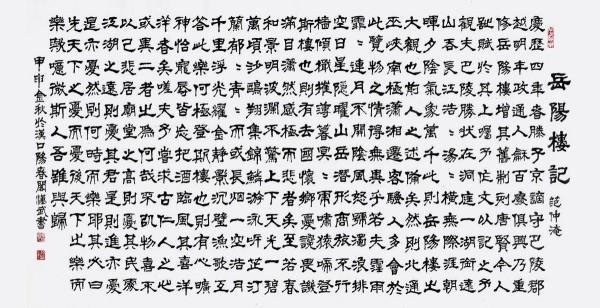 岳陽樓記 范仲淹
慶歷四年春滕子京謫守巴陵郡
越明年政通人和百廢俱興乃重
修岳陽樓增其舊制刻唐賢今人
詩賦於其上囑予作文以記之予
觀夫巴陵勝狀在洞庭一湖銜遠
山吞長江浩浩湯湯橫無際涯朝
暉夕陰氣象萬千此則岳陽樓之
大觀也前人之述備矣然則北通
巫峽南極瀟湘遷客騷人多會於
此覽物之情得無異乎若夫霪雨
霏霏連月不開陰風怒號濁浪排
空日星隱曜山岳潛形商旅不行
檣傾楫摧薄暮冥冥虎嘯猿啼登
斯樓也則有去國懷鄉憂讒畏譏
滿目蕭然感極而悲者矣至若春
和景明波瀾不驚上下天光一碧
萬頃沙鷗翔集錦鱗游泳岸芷汀
蘭郁郁青青而或長煙一空皓月
千里浮光耀金靜影沉璧漁歌互
答此樂何極登斯樓也則有心曠
神怡寵辱皆忘把酒臨風其喜洋
洋者矣嗟夫予嘗求古仁人之心
或異二者之為何哉不以物喜不
以己悲居廟堂之高則憂其民處
江湖之遠則憂其君是進亦憂
退亦憂然則何時而樂耶其必曰
先天下之憂而憂後天下之樂而
樂歟噫微斯人吾誰與歸
甲申金秋於漢口陽春閣 書